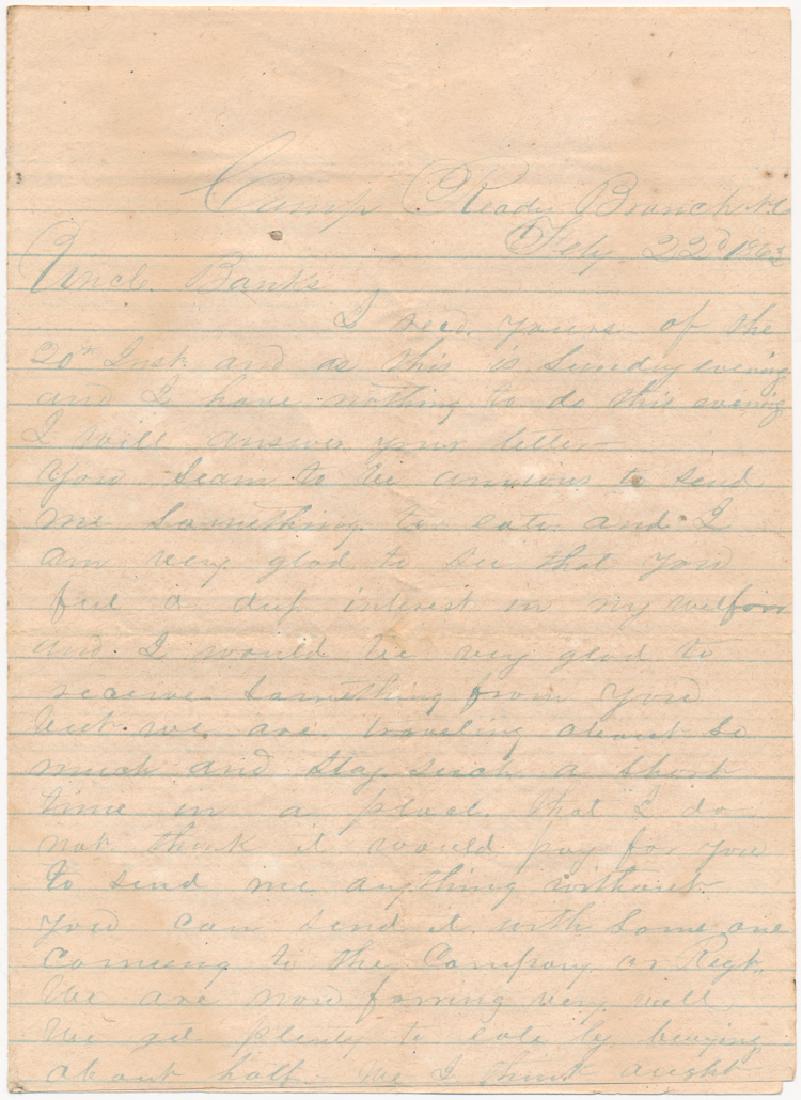 Camp Ready Branch N.C.
Feby 22d 186
Uncle Banks
I recd. yours of the
20th Inst. and as this is Sunday evening
and I have nothing to do this evening
I will answer your letter
You seam to be anxious to send
me something to eate and I
am very glad to see that you
feel a deep interest in my welfare
and I would be very glad to
receive something from you
but we are traveling about so
much and stay such a short
time in a place that I do
not think it would pay for you
to send me anything without
you can send it with some one
Comeing to the Company or Regt.
We are now farring very well
We get plenty to eate by buying
about half. We I think aught